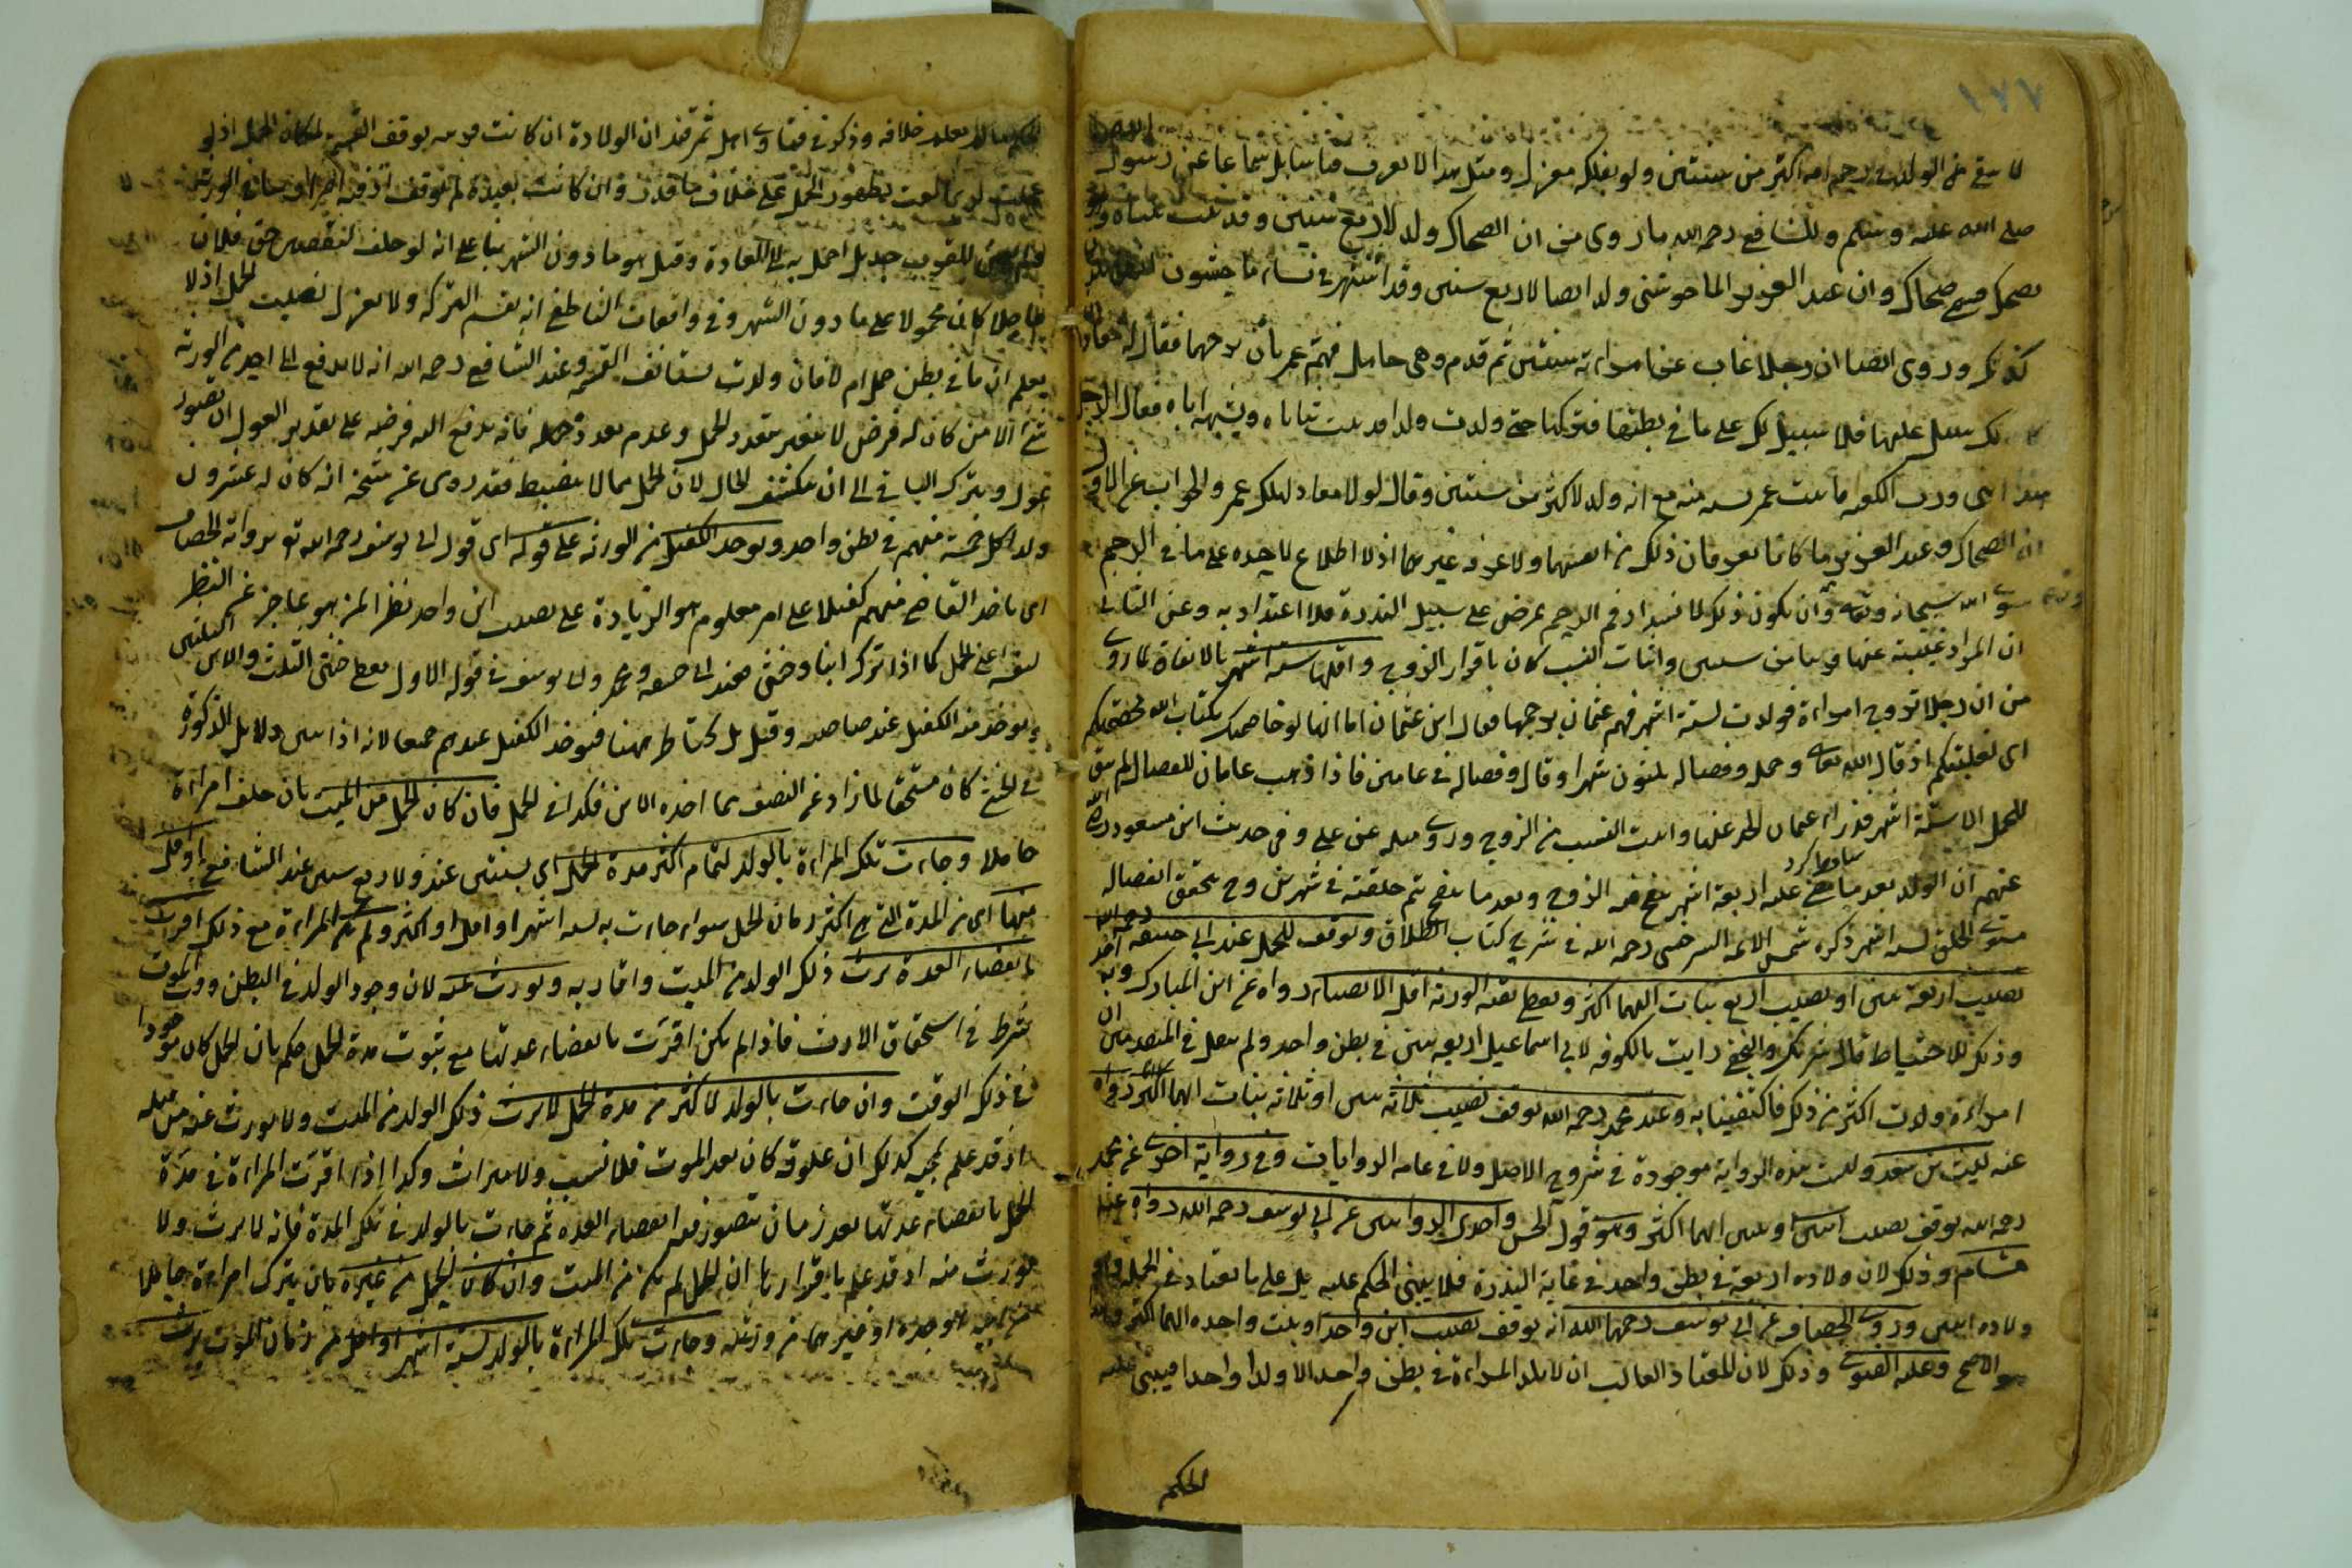 ١٧٧
لا يبقى الولد في رحم امه اكثر من سنتين ولو بفلكة مغزل ومثل هذا لا يعرف قياسا بل سماعا عن رسول
صلى الله عليه وسلم وللشافعي رحمه الله ما روى من ان الضحاك ولد لاربع سنين وقد نبتت ثناياه وهو
يضحك فسمى ضحاكا وان عبد العزيز الماجوشنى ولد ايضا لاربع سنين وقد اشتهر في نساء ماجشون
كذلك وروى ايضا ان رجلا غاب عن امراءته سنتين ثم قدم وهى حامل فهم عمر بان يرجمها فقال له معاذ
لك سبيل عليها فلا سبيل لك على ما في بطنها فتركها حتى ولدت ولدا قد نبتت ثناياه ويشبه اباه فقال الرجل
هذا ابنى ورب الكعبة فاثبت عمر نسبه منه مع انه ولد لاكثر من سنتين وقال لولا معاذ لهلك عمر والجواب عن الاول
ان الضحاك وعبد العزيز ما كانا يعرفان ذلك من انفسهما ولا عرفه غيرهما اذ لا اطلاع لاحد على ما في الرحم
سوى الله سبحانه وتعالى وان يكون ذلك لانسداد فم الرحم لمرض على سبيل الندرة فلا اعتداد به وعن الثانى
ان المراد بغيبته عنها قريبا من سنتين واثبات النسب كان باقرار الزوج واقلها ستة اشهر بالاتفاق لما روى
من ان رجلا تزوج امراءة فولدت لستة اشهر فهم عثمان برجمها فقال ابن عثمان اما انها لو خاصمتكم بكتاب الله لخصمتكم
اى لغلبتكم اذ قال الله تعالى وحمله وفصاله ثلثون شهرا وقال وفصاله في عامين فاذا ذهب عامان للفصال لم يبق
للحمل الا ستة اشهر فدراء عثمان الحد عنها واثبت النسب من الزوج وروى مثله عن على وفي حديث ابن مسعود رضى الله
عنهم ان الولد بعد ما مضى عليه اربعة اشهر ينفخ فيه الروح وبعد ما ينفخ تم خلقته في شهرين وح يتحقق انفصاله
مستوى الخلق لستة اشهر ذكره شمس الائمه السرخسى رحمه الله في شرح كتاب الطلاق ويوقف للحمل عند ابى حنيفه رحمه الله
نصيب اربعة بنين او نصيب اربع بنات ايهما اكثر ويعطى بقية الورثة اقل الانصباء رواه عن ابن المبارك وبه
وذلك للاحتياط قال شريك النخعى رايت بالكوفه لابى اسماعيل اربعه بنين في بطن واحد ولم ينقل عن المتقدمين ان
امراءة ولدت اكثر من ذلك فاكتفينا به وعند محمد رحمه الله يوقف نصيب ثلاثه بنين او ثلاثه بنات ايهما اكثر رواه
عنه ليث بن سعد وليست هذه الرواية موجودة في شروح الاصل ولا في عامه الروايات وفي رواية اخرى عن محمد
رحمه الله يوقف نصيب ابنين او بنتين ايهما اكثر وهو قول الحسن واحدى الروايتين عن ابى يوسف رحمه الله رواه عنه
هشام وذلك لان ولادة اربعة في بطن واحد في غاية الندرة فلا يبنى الحكم عليه بل على ما يعتاد في الجملة وهو
ولاده اثنين وروى الخصاف عن ابى يوسف رحمهما الله انه يوقف نصيب ابن واحد او بنت واحده ايهما اكثر
هو الاصح وعليه الفتوى وذلك لان المعتاد الغالب ان لا يلد المراءة في بطن واحد الا ولدا واحدا فيبنى عليه
الحكم
الحكم ما لم يعلم خلافه وذكر في فتاوى اهل سمرقند ان الولادة ان كانت قريبه يوقف القسمة لمكان الحمل اذ لو
عجلت لربما لغت بظهور الحمل على خلاف ما قدر وان كانت بعيدة لم توقف اذ فيه اضرار بباقى الورثة
للقريب حد بل احيل به الى العادة وقيل هو ما دون الشهر بناء على انه لو حلف لنقضين حق فلان
عاجلا كان محمولا على ما دون الشهر وفي واقعات الناطفى انه يقسم التركه ولا يعزل نصيب الحمل اذ لا
يعلم ان ما في بطن حمل ام لا فان ولدت يستانف القسمة وعند الشافعي رحمه الله انه لا يدفع الى احد من الورثة
شئ الا من كان له فرض لا يتغير بتعدد الحمل وعدم تعدده فانه يدفع اليه فرضه على تقدير العول ان تصور
عول ويترك الباقى الى ان ينكشف الحال لان الحمل مما لا ينضبط فقد روى عن شيخه انه كان له عشرون
ولدا كل خمسة منهم في بطن واحد ويؤخذ الكفيل من الورثة على قوله اى قول ابى يوسف رحمه الله تعالى برواية الخصاف
اى ياخذ القاضى منهم كفيلا على امر معلوم هو الزيادة على نصيب ابن واحد نظرا لمن هو عاجز عن النظر
لنفسه اعنى الحمل كما اذا ترك ابنا وخنثى فعند ابى حنيفه ومحمد وابى يوسف في قوله الاول يعطى خنثى الثلث والابن الثلثين
ويؤخذ منه الكفيل عند صاحبيه وقيل بل يحتاط ههنا فيؤخذ الكفيل عندهم جميعا لانه اذا تبين دلايل الذكورة
في الخنثى كان مستحقا لما زاد عن النصف مما اخذه الابن فكذا في الحمل فان كان الحمل من الميت بان خلف امراءة
حاملا وجاءت تلك المراءة بالولد لتمام اكثر مدة الحمل اى لسنتين عندنا ولاربع سنين عند الشافعي او اقل
منها اى من المدة التى هى اكثر زمان الحمل سواء جاءت به لستة اشهر او اقل او اكثر ولم تكن المراءة مع ذلك اقرت
بانقضاء العدة يرث ذلك الولد من الميت واقاربه ويورث عنه لان وجود الولد في البطن وقت الموت
شرط في استحقاق الارث فاذا لم تكن اقرت بانقضاء عدتها مع ثبوت مدة الحمل حكم بان الحمل كان موجودا
في ذلك الوقت وان جاءت بالولد لاكثر من مدة الحمل لا يرث ذلك الولد من الميت ولا يورث عنه من قبله
اذ قد علم بمجيئه كذلك ان علوقه كان بعد الموت فلا نسب ولا ميراث وكذا اذا اقرت المراءة في مدة
الحمل بانقضاء عدتها بعد زمان يتصور فيه انقضاء العده ثم جاءت بالولد في تلك المدة فانه لا يرث ولا
يورث منه اذ قد علم باقرارها ان الحمل لم يكن من الميت وان كان الحمل من غيره بان يترك امراءة حاملا
من ابيه او جده او غيرهما من ورثته وجاءت تلك المراءة بالولد لستة اشهر او اقل من زمان الموت يرث